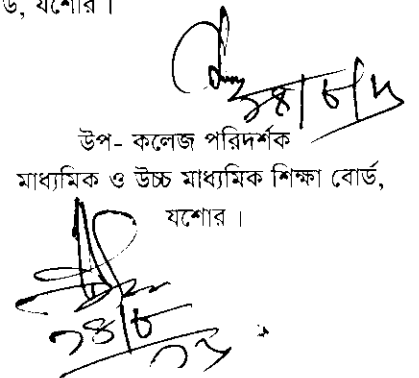 র্ড, যশোর।
উপ- কলেজ পরিদর্শক
মাধ্যমিক ও উচ্চ মাধ্যমিক শিক্ষা বোর্ড,
যশোর।